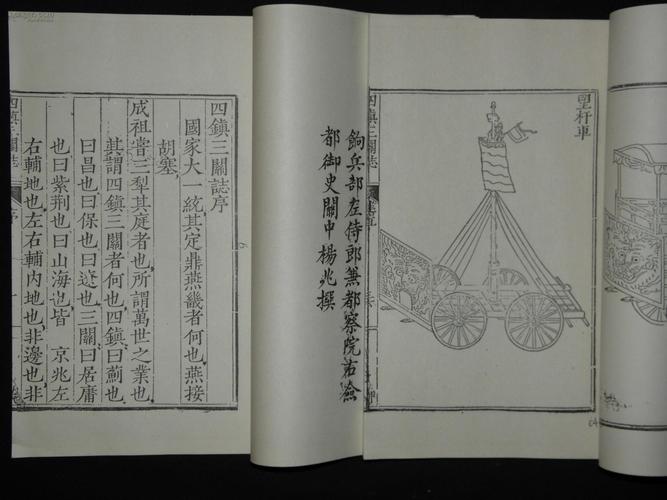 望杆車
四鎮三關誌
餉兵部左侍郎兼都察院右僉
都御史關中楊兆撰
四鎮三關誌序
國家大一統其定鼎燕畿者何也燕接
胡塞
成祖嘗三犁其庭者也所謂萬世之業也
其謂四鎮三關者何也四鎮曰薊也
曰昌也曰保也曰遼也三關曰居庸
也曰紫荆也曰山海也皆 京兆左
右輔地也左右輔內地也非邊也非
四鎮三關誌 序